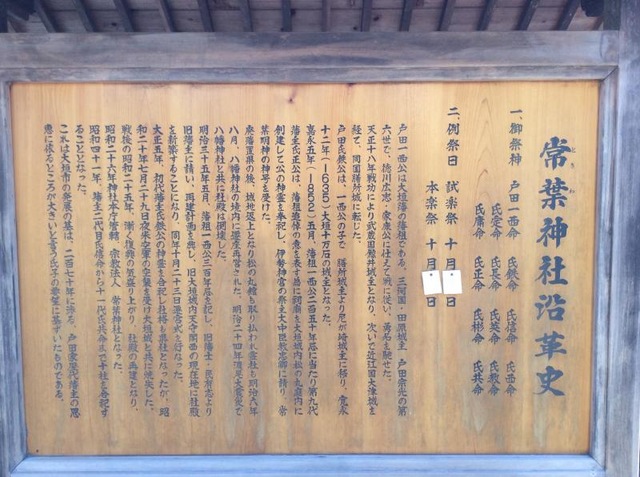 常葉神社沿革史
一、御祭神 戸田一西命 氏鉄命 氏信命 氏西命
氏定命 氏長命 氏英命 氏教命
氏庸命 氏正命 氏彬命 氏共命
二、例祭日 試楽祭 十月 日
本楽祭 十月 日
戸田一西公は大垣藩の藩祖である。三河国・田原城主、戸田宗光の第
六世で、徳川広忠・家康公に仕えて戦に従い、勇名を馳せた。
天正十八年戦功により武蔵国鯨井城主となり、次いで近江国大津城を
経て、同国膳所城に転じた。
戸田氏鉄公は、一西公の子で 膳所城主より尼が崎城主に移り、寛永
十二年(一六三五)大垣十万石の城主となった。
嘉永五年(一八五二)五月、藩祖一西公二百五十年忌に当たり第九代
藩主氏正公は、藩祖追悼の意を表す為に祠廟を大垣城内松の丸廓内に
創建して公の神霊を奉祀し、伊勢神宮の祭主大中臣教忠卿に請り、常
葉明神の神号を受けた。
廃藩置県の後、城地返上となり松の丸櫓も取り払われ霊社も明治八年
八月、八幡神社の境内に遷座再営された。明治二十四年濃尾大震災で
八幡神社と共に社殿は倒壊した。
明治三十五年五月、藩祖一西公三百年忌を記し、旧藩士・民有志より
旧藩主に請い、再建計画を興し、旧大垣城内天守閣西の現在地に社殿
を新築することになり、同年十月二十三日遷宮式を行なった。
大正五年、初代藩主氏鉄公の神霊を合祀し社格も県社となったが、昭
和二十年七月二十九日夜米空軍の空襲を受け大垣城と共に焼失した。
戦後の昭和二十五年、漸く復興の気運り上がり、社殿の再建となり、
昭和二十六年神社本庁管轄、宗教法人 常葉神社となった。
昭和四十一年、藩主二代目氏信命から十一代氏共命まで十柱を合祀す
ることとなった。
これは大垣市の発展の基は、二百七十年に渉る、戸田家歴代藩主の恩
恵に依るところが大きいと言う氏子の要望に基ずいたものである。